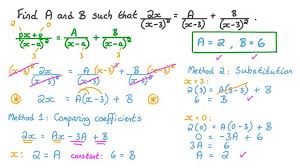 Find A and B such that 2x/(x-3)² = A/(x-3) + B/(x-3)².
1 0
px+q/(x-a)² = A/(x-a) + B/(x-a)²
A = 2, B = 6
(x-3)² 2x/(x-3)² = A(x-3)²/(x-3) + B(x-3)²/(x-3)²
2x = A(x-3) + B
Method 1: Comparing coefficients
2x = Ax - 3A + B
x: 2 = A constant: 6 = B
Method 2: Substitution
x=3:
2(3) = A(3-3) + B
6 = B
x=0:
2(0) = A(0-3) + B
0 = -3A + 6
3A = 6
A = 2